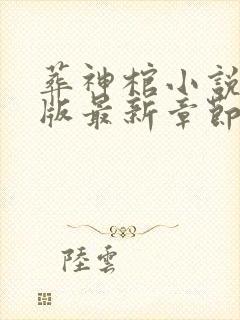 葬神棺小説
版最新章節
陸雲